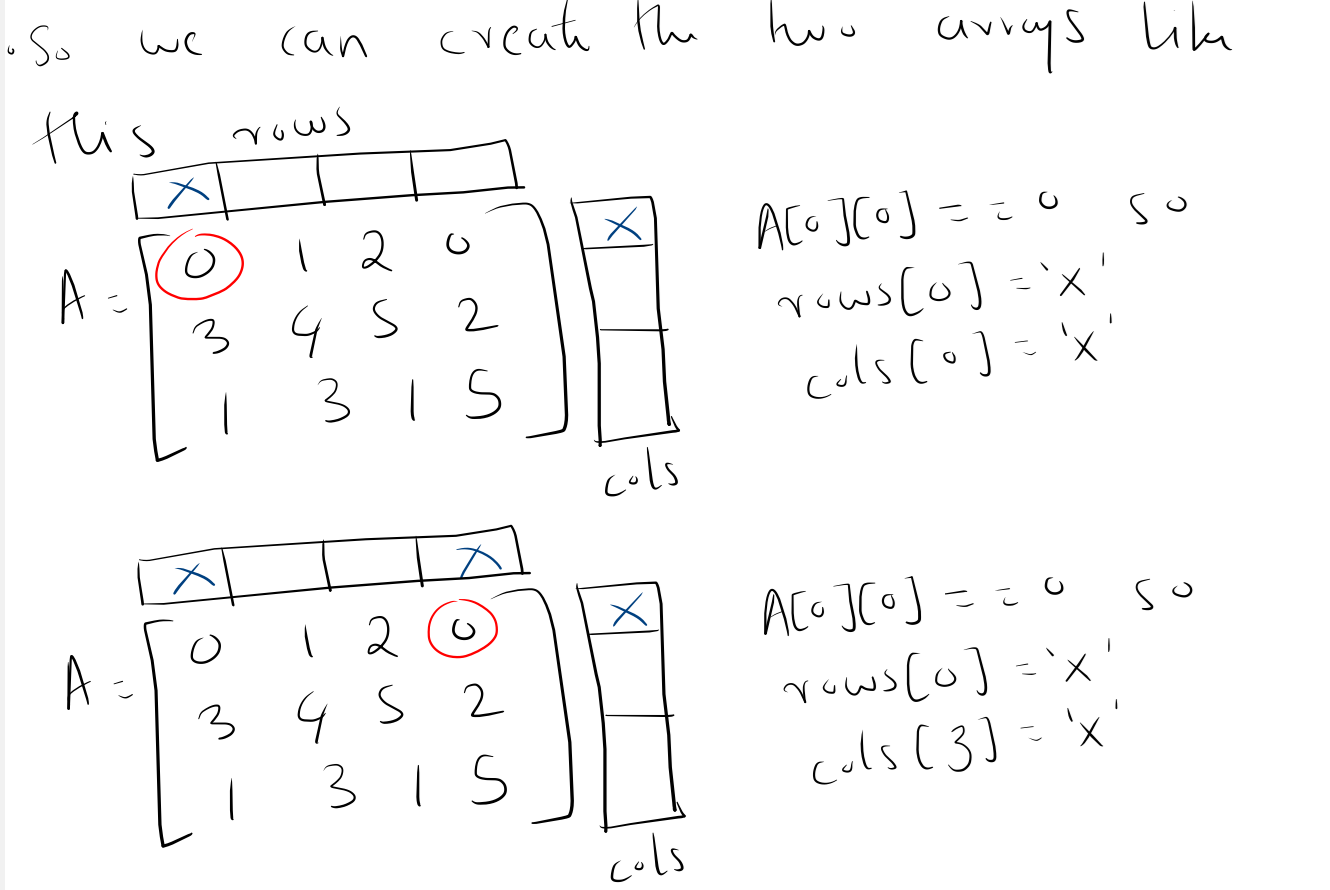 .So we can create the two arrays like
this rows
X
A = 0 1 2 0 X
3 4 5 2
1 3 1 5
cols
A[0][0] == 0 so
rows[0] = 'x'
cols[0] = 'x'
X X
A = 0 1 2 0 X
3 4 5 2
1 3 1 5
cols
A[0][0] == 0 so
rows[0] = 'x'
cols[3] = 'x'